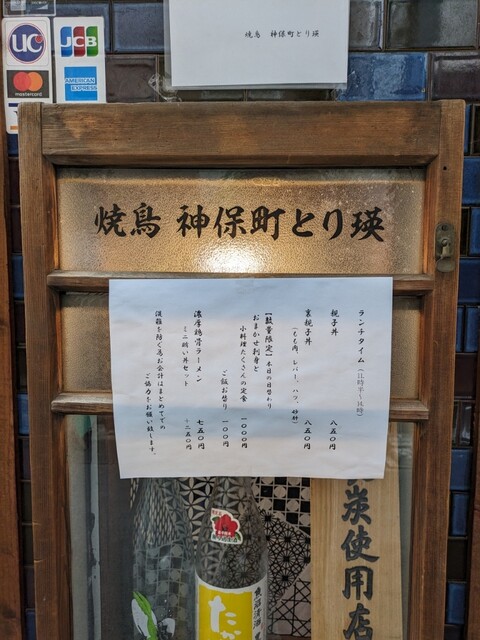 UC
JCB
mastercard
AMERICAN EXPRESS
焼鳥 神保町とり瑛
焼鳥 神保町とり瑛
ランチタイム(11時半〜14時)
親子丼 八五〇円
裏親子丼 八五〇円
(もも肉、レバー、ハツ、砂肝)
【数量限定】本日の日替わり
おまかせ刺身と
小料理たくさんの定食 1000円
ご飯お替り 100円
濃厚鶏骨ラーメン 七五〇円
ミニ賄い丼セット +二五〇円
混雑を防ぐ為お会計はまとめてでの
ご協力をお願い致します。
炭使用店
たか